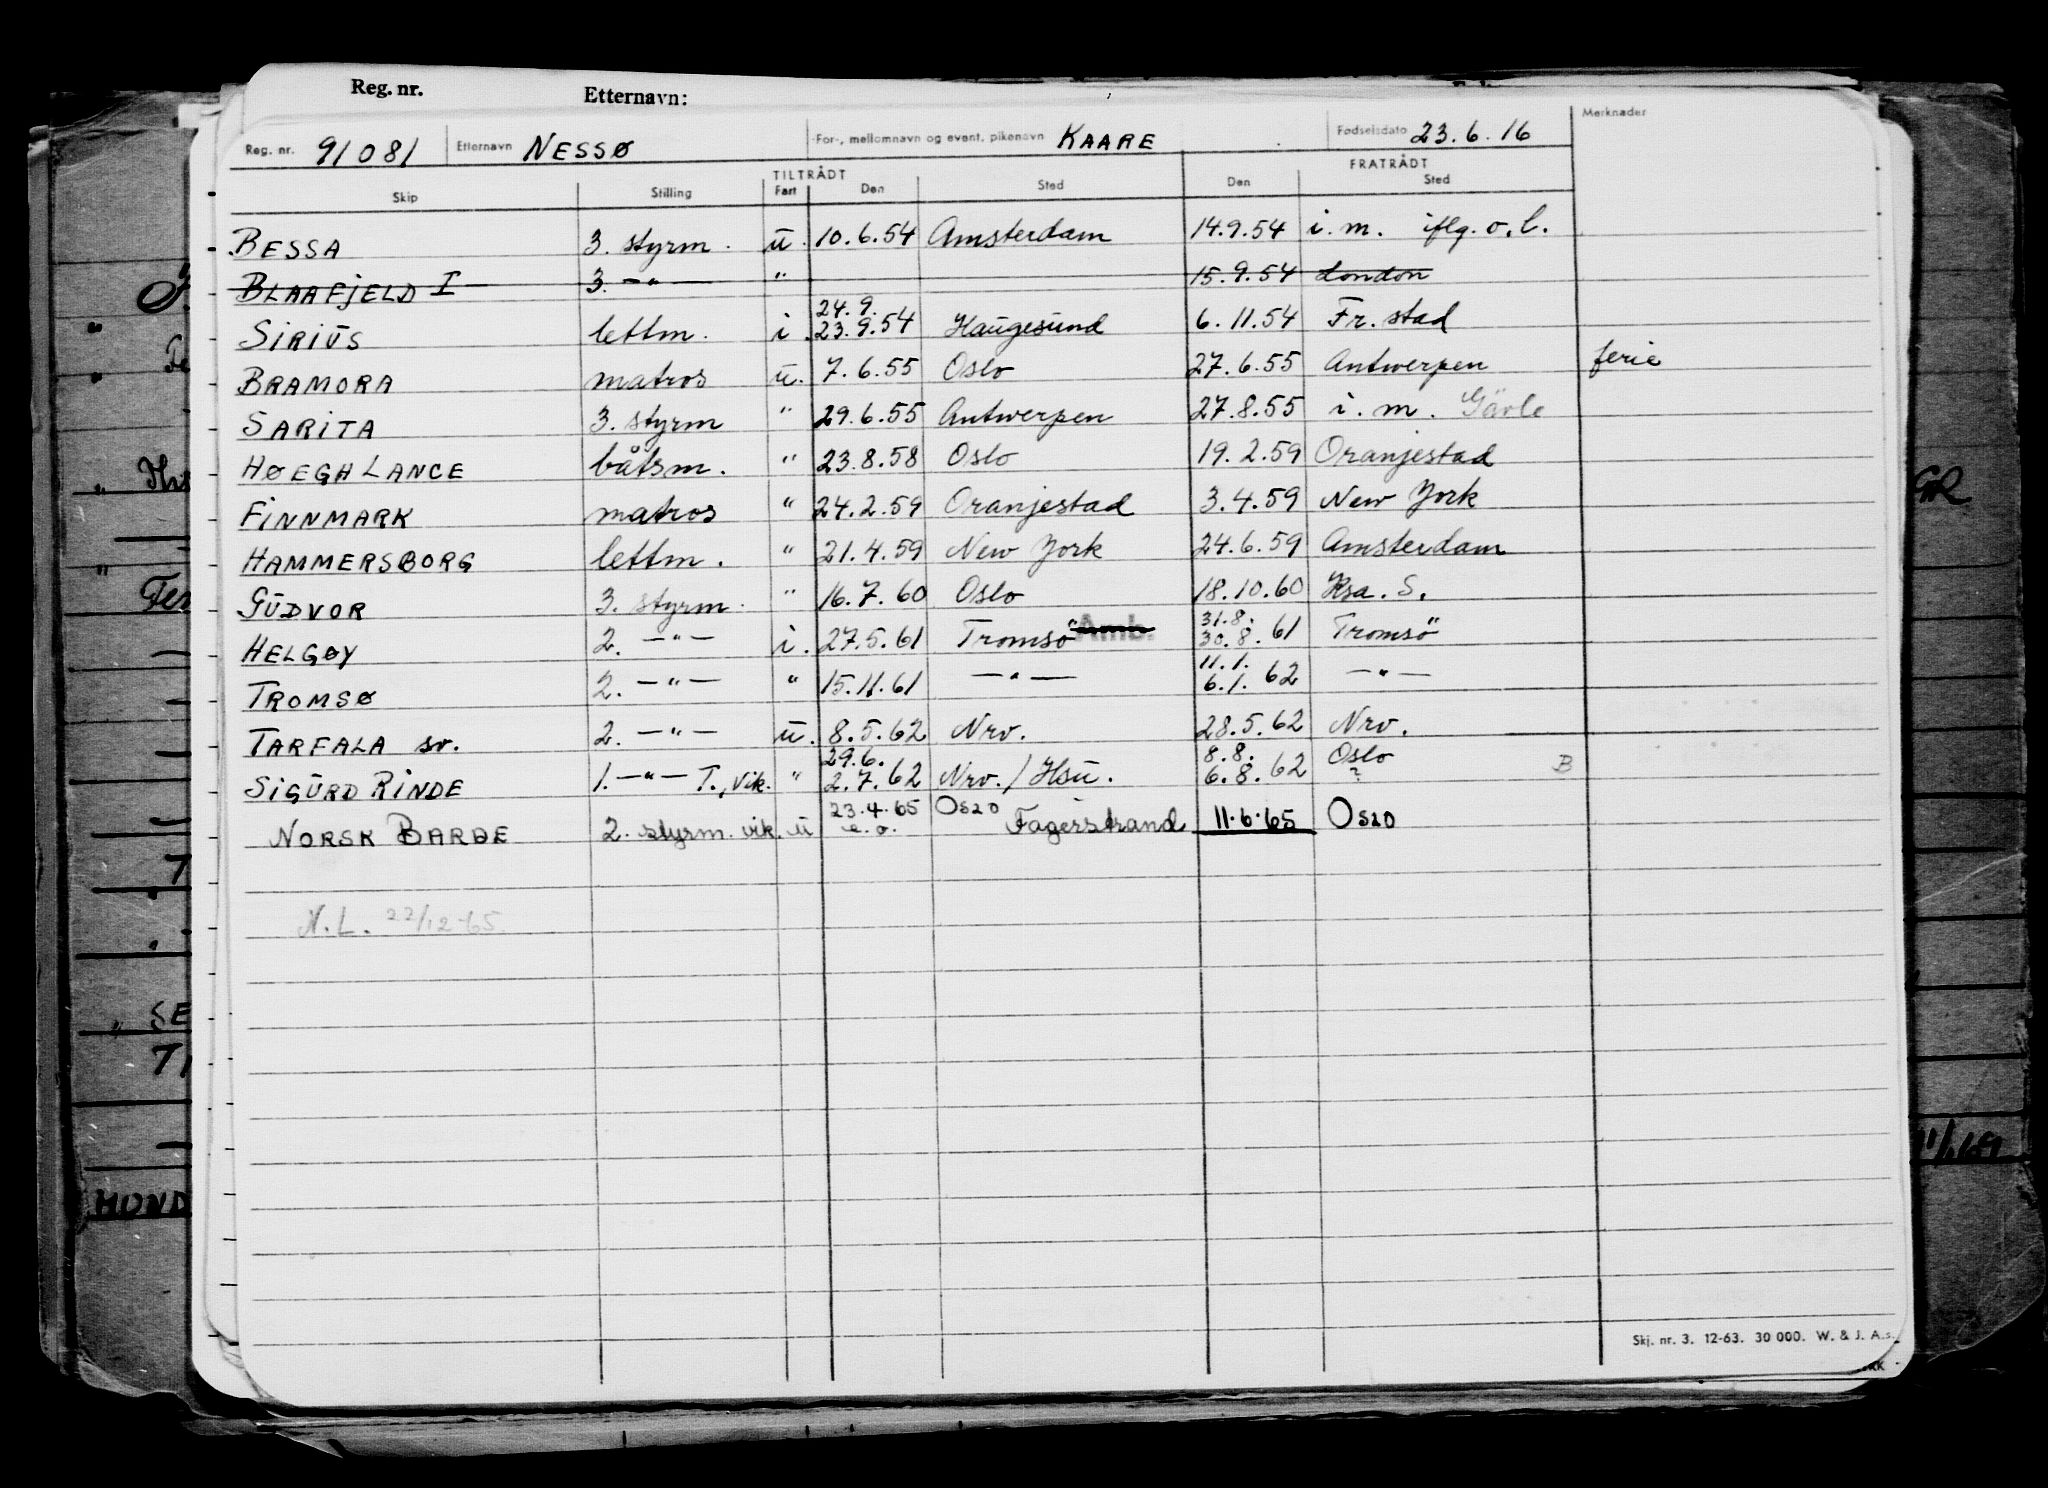 Reg. nr. Etternavn:
Reg. nr. 91081 Etternavn NESSØ For-, mellomnavn og event. pikenavn KAARE Fødselsdato 23.6.16 Merknader
TILTRÅDT FRATRÅDT
Skip Stilling Fart Den Sted Den Sted
BESSA 3. styrm. u. 10.6.54 Amsterdam 14.9.54 i.m. iflg. o.l.
BLAAFJELD I 3. —"— " 15.9.54 London
24.9.
SIRIUS lettm. i. 23.9.54 Haugesund 6.11.54 Fr.stad
BRAMORA matros u. 7.6.55 Oslo 27.6.55 Antwerpen ferie
SARITA 3. styrm " 29.6.55 Antwerpen 27.8.55 i.m. Gävle
HØEGH LANCE båtsm. " 23.8.58 Oslo 19.2.59 Oranjestad
FINNMARK matros " 24.2.59 Oranjestad 3.4.59 New York
HAMMERSBORG lettm. " 21.4.59 New York 24.6.59 Amsterdam
GUDVOR 3. styrm. " 16.7.60 Oslo 18.10.60 Ksa. S.
31.8.
HELGØY 2. —"— i. 27.5.61 Tromsö Amb. 30.8.61 Tromsö
11.1.
TROMSØ 2. —"— " 15.11.61 —"— 6.1.62 —"—
TARFALA sv. 2. —"— u. 8.5.62 Nrv. 28.5.62 Nrv.
29.6. 8.8. Oslo
SIGURD RINDE 1. —"— T., vik. " 2.7.62 Nrv./Hsu. 6.8.62 ? B
23.4.65 OSLO
NORSK BARDE 2. styrm. vik. u e.o. Fagerstrand 11.6.65 OSLO
N.L. 22/12-65
Skj. nr. 3. 12-63. 30 000. W. & J. A.s.